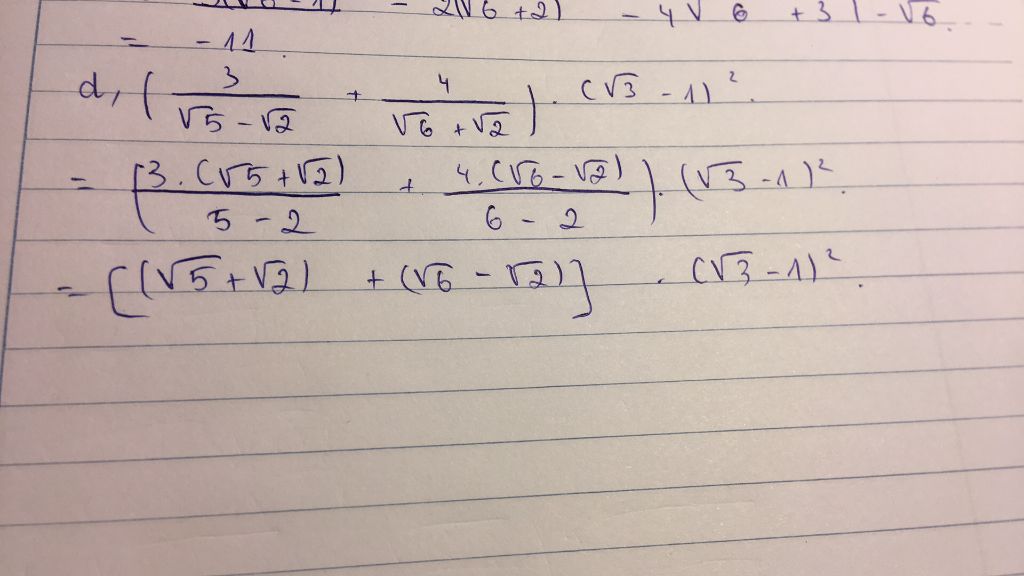 - 2(√6 + 2) - 4√6 + 3 1 - √6.
= - 11.
d, ( 3/(√5 - √2) + 4/(√6 + √2) ) . (√3 - 1)².
= ( 3.(√5 + √2)/(5 - 2) + 4.(√6 - √2)/(6 - 2) ) . (√3 - 1)².
= [(√5 + √2) + (√6 - √2)] . (√3 - 1)².